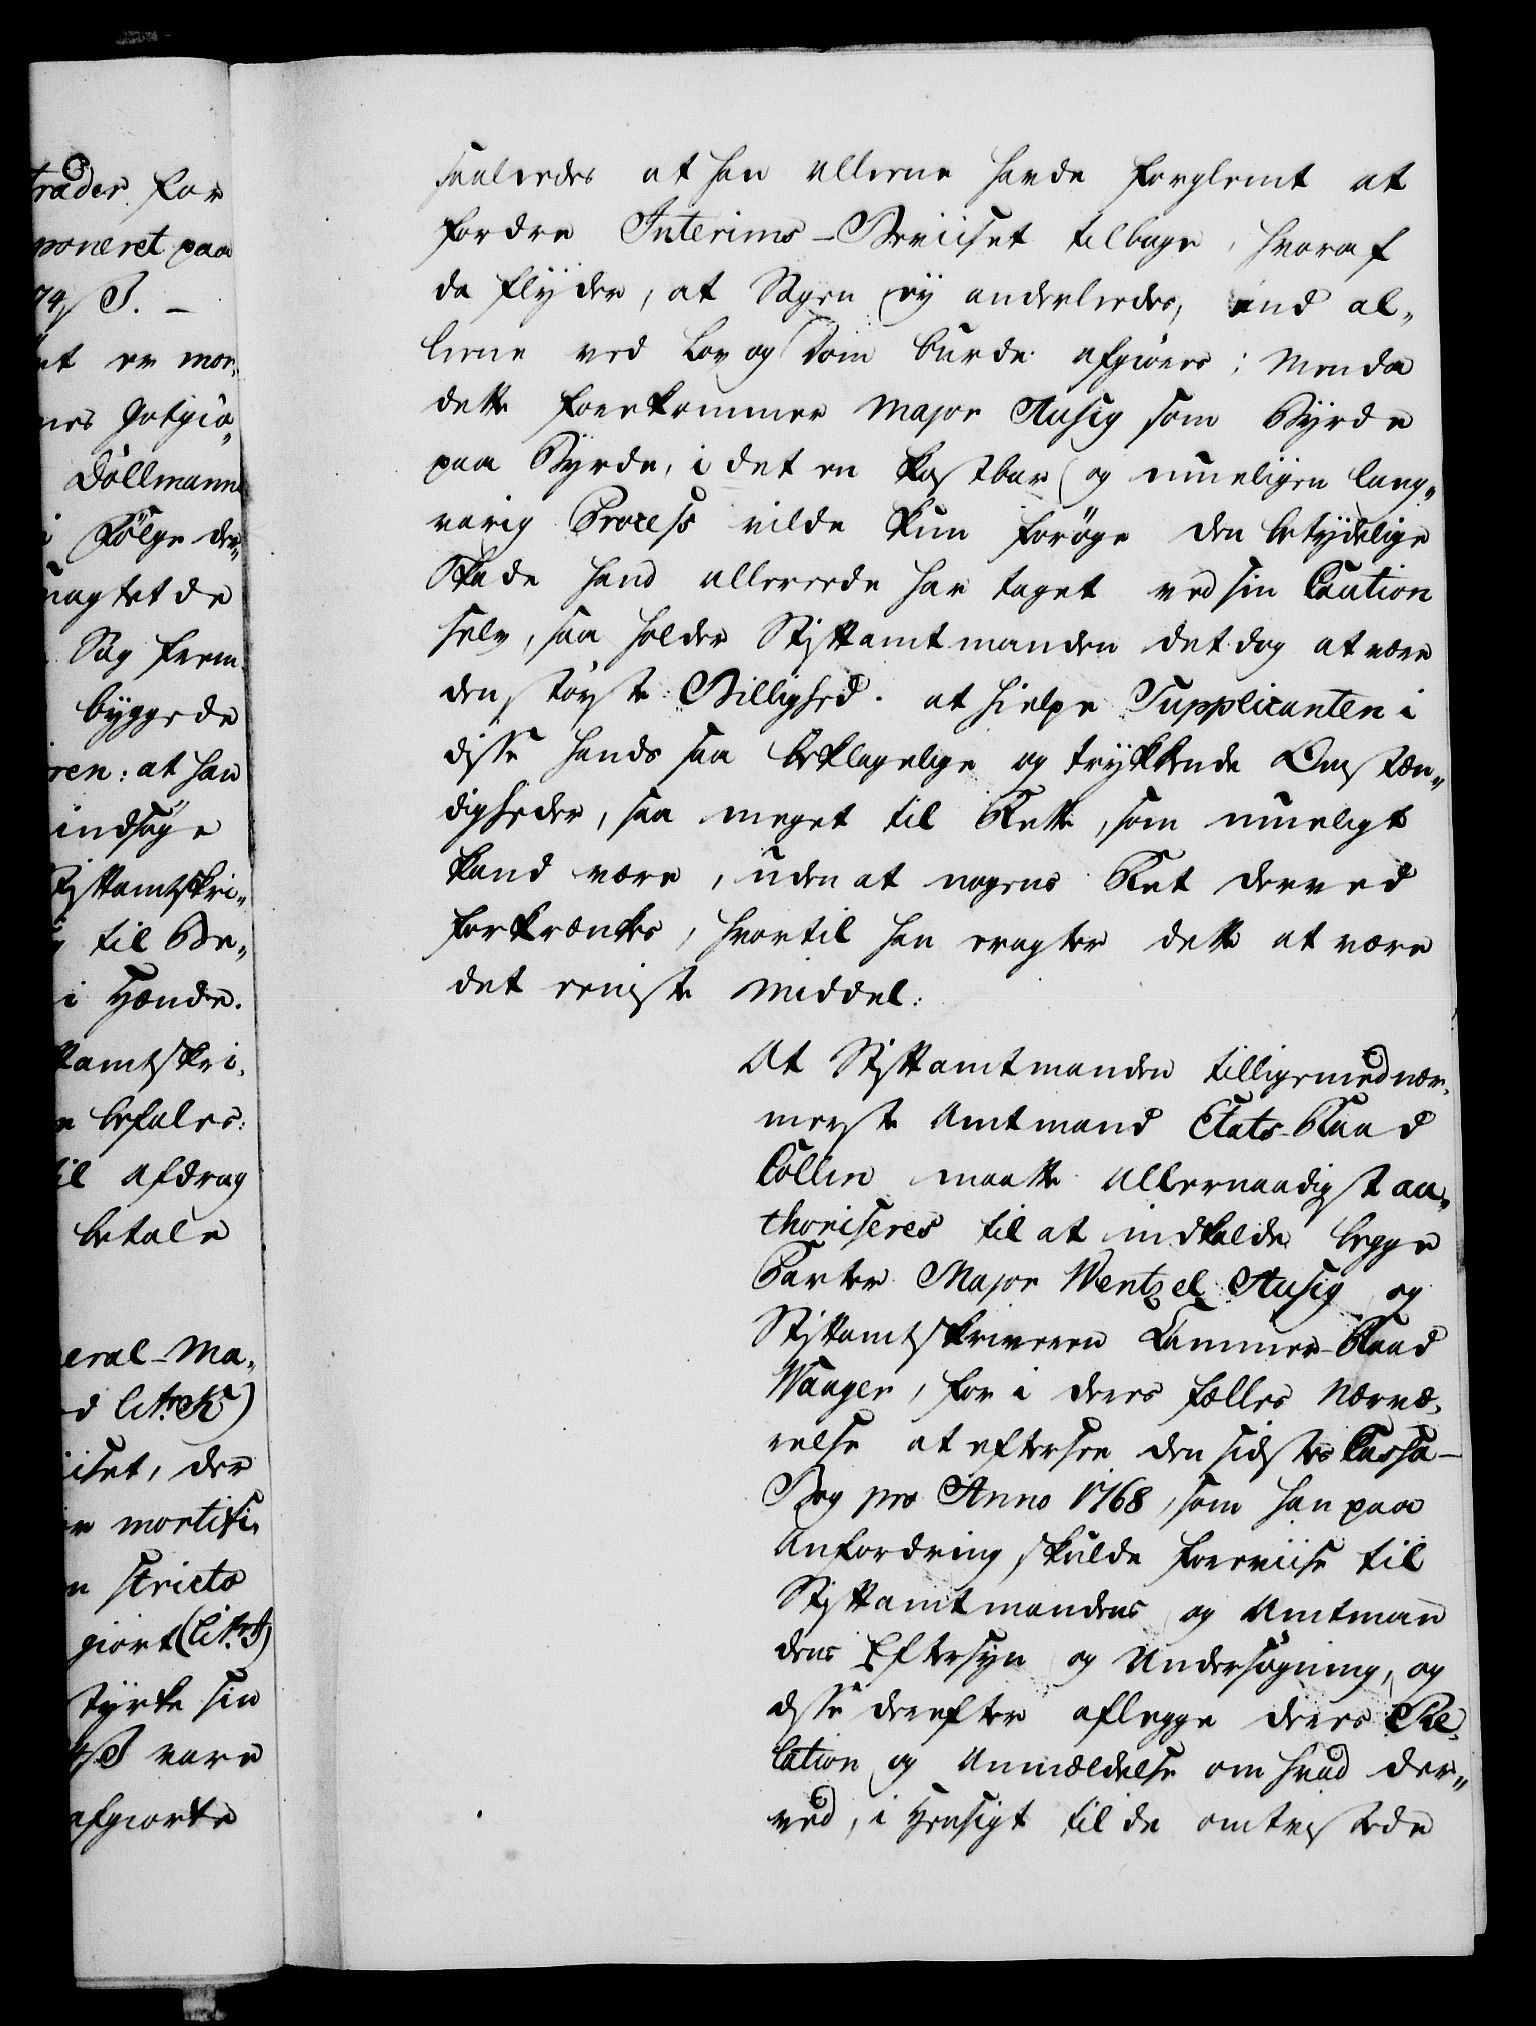 trader for
poneret paa
74 β. –
et er mor¬
nes Gotgiö¬
Döllmanns
i Følge der¬
magtet de
Sag frem
byggede
ren: at han
indsage
Stiftamtskri¬
til Be¬
i Hænde.
tamtskri¬
befales:
til Afdrag
betale
eral-Ma¬
d litr. K)
iset, der
mortifi¬
stricto
giort (litr. J)
styrke sin
β vare
afgiorte
saaledes at han alleene havde forglemt at
fordre Interims-Beviiset tilbage, hvoraf
da flÿder, at Sagen eÿ anderledes, end al¬
leene ved Lov og Dom burde afgiøres; Men da
dette forekommer Major Ausig som Byrde
paa Byrde, i det en kostbar og mueligen lang¬
varig Process vilde kun forøge den betydelige
Skade hand allereede har taget ved sin Caution
selv, saa holder Stiftamtmanden det dog at være
den største Billighed at hielpe Supplicanten i
disse hands saa beklagelige og trykkende Omstæn¬
digheder, saa meget til Rette, som mueligt
kand være, uden at nogens Ret derved
forkrænkes, hvortil han eragter dette at være
det eeniste Middel:
At Stiftamtmanden tilligemed nær¬
meste Amtmand Etats-Raad
Collin maatte allernaadigst au¬
thoriseres til at indkalde begge
Parter Major Wentzel Ausig og
Stiftamtskriveren Cammer-Raad
Wanger, for i deres fælles Nærvæ¬
relse at eftersee den sidstes Cassa-
Bog pro Anno 1768, som han paa
Anfordring skulde foreviise til
Stiftamtmandens og Amtman
dens Eftersyn og Undersøgning, og
disse derefter aflegge deres Re¬
lation og Anmeldelse om hvad der¬
ved, i Hensigt til de omtvistede